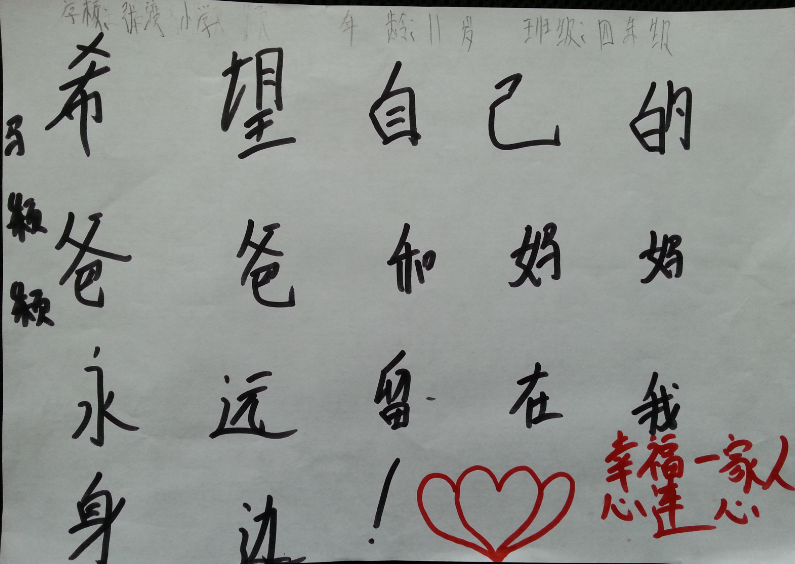 学校: 小学 年龄:11岁 班级:四年级
马颖颖
希望自己的
爸爸和妈妈
永远留在我
身边!
幸福一家人
心连心